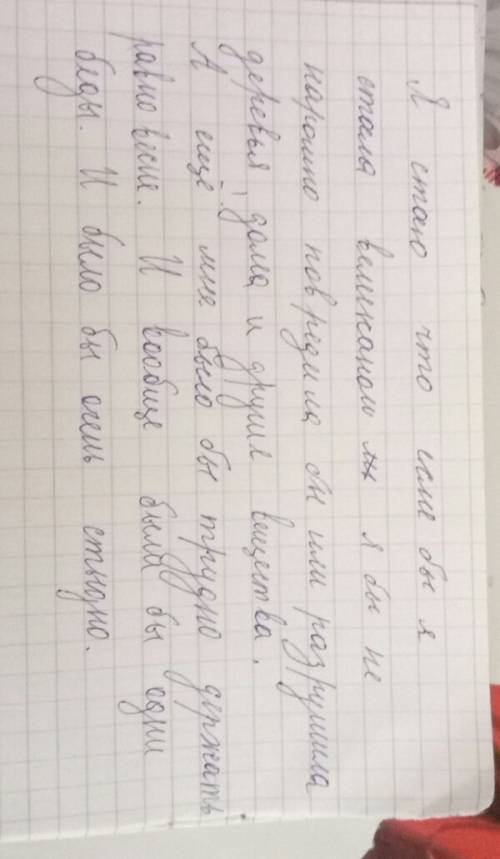 Я стаю что если бы я
стала великаном я бы не
наромно повредила бы или разрушила
деревья, дома и другие вещества.
А ещё мне было бы трудно держать
равно весие. И вообще были бы одни
беды. И было бы очень стыдно.